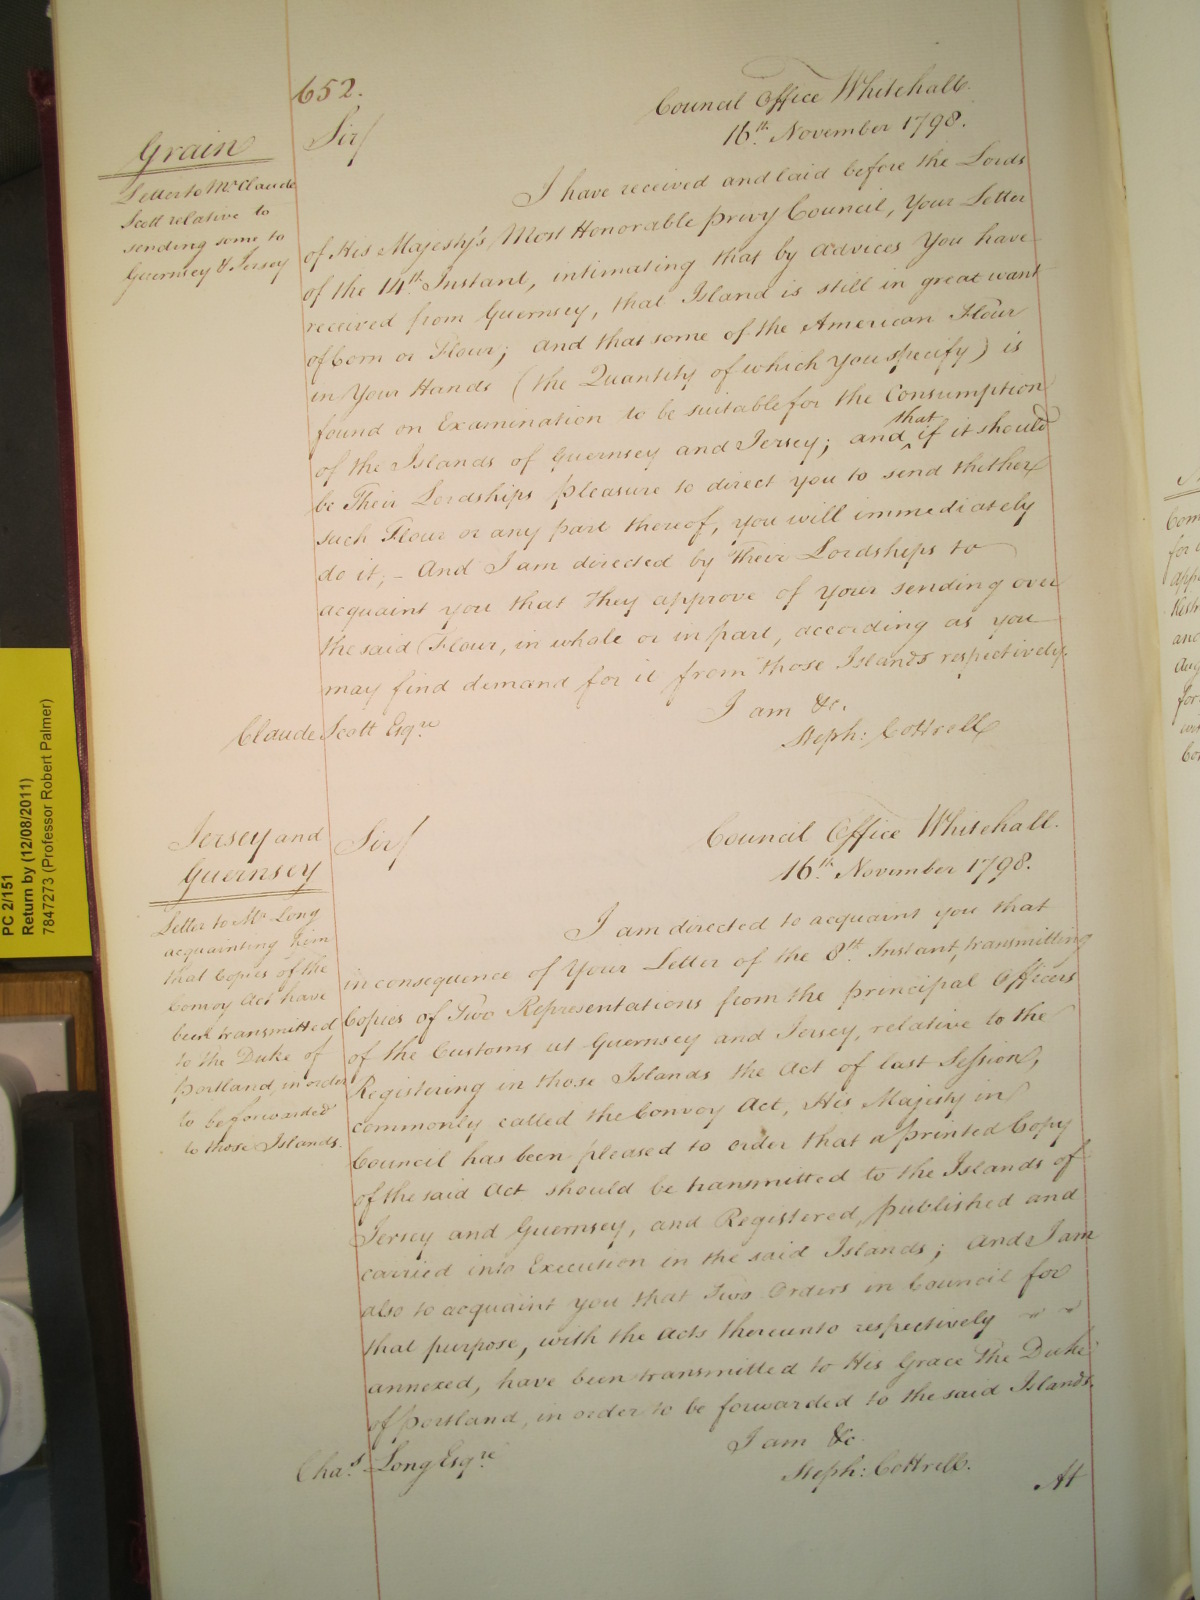 652.
Council Office Whitehall.
16th. November 1798.
Sir/
Grain
Letter to Mr. Claude
Scott relative to
sending some to
Guernsey & Jersey
I have received and laid before the Lords
of His Majesty's Most Honorable privy Council, Your Letter
of the 14th. Instant, intimating that by advices You have
received from Guernsey, that Island is still in great want
of Corn or Flour; and that some of the American Flour
in Your Hands (the Quantity of which You specify) is
found on Examination to be suitable for the Consumption
of the Islands of Guernsey and Jersey; and that if it should
be Their Lordships pleasure to direct you to send thither
such Flour or any part thereof, you will immediately
do it; - And I am directed by Their Lordships to
acquaint you that They approve of your sending over
the said Flour, in whole or in part, according as you
may find demand for it from those Islands respectively.
I am &c.
Steph: Cottrell
Claude Scott Esqre
Jersey and
Guernsey
Letter to Mr. Long
acquainting him
that Copies of the
Convoy Act have
been transmitted
to the Duke of
Portland, in order
to be forwarded
to those Islands.
Sir/
Council Office Whitehall.
16th. November 1798.
I am directed to acquaint you that
in consequence of Your Letter of the 8th. Instant, transmitting
Copies of Two Representations from the principal Officers
of the Customs at Guernsey and Jersey, relative to the
Registering in those Islands the Act of last Session,
commonly called the Convoy Act, His Majesty in
Council has been pleased to order that a printed Copy
of the said Act should be transmitted to the Islands of
Jersey and Guernsey, and Registered, published and
carried into Execution in the said Islands; and I am
also to acquaint you that Two Orders in Council for
that purpose, with the Acts thereunto respectively
annexed, have been transmitted to His Grace The Duke
of Portland, in order to be forwarded to the said Islands.
I am &c
Steph: Cottrell.
Chas. Long Esqre
At
PC 2/151
Return by (12/08/2011)
7847273 (Professor Robert Palmer)